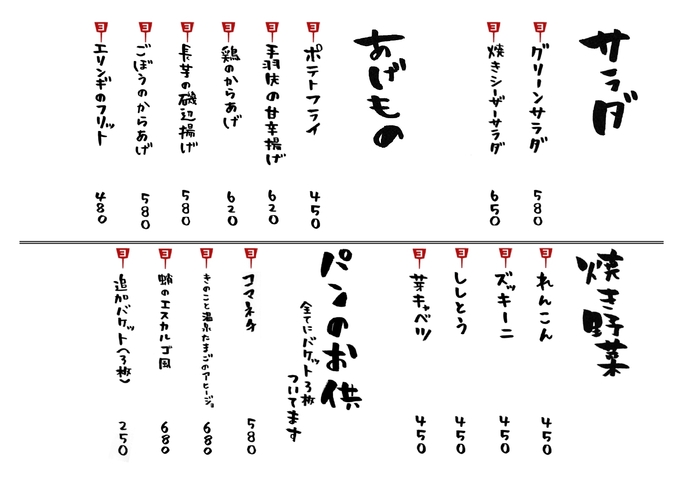 サラダ
グリーンサラダ 580
焼きシーザーサラダ 650
あげもの
ポテトフライ 450
手羽先の甘辛揚げ 620
鶏のからあげ 620
長芋の磯辺揚げ 580
ごぼうのからあげ 580
エリンギのフリット 480
焼き野菜
れんこん 450
ズッキーニ 450
ししとう 450
芽キャベツ 450
パンのお供
全てにバゲット3枚
ついてます
コマネチ 580
きのこと温泉たまごのアヒージョ 680
蛸のエスカルゴ風 680
追加バゲット(3枚) 250